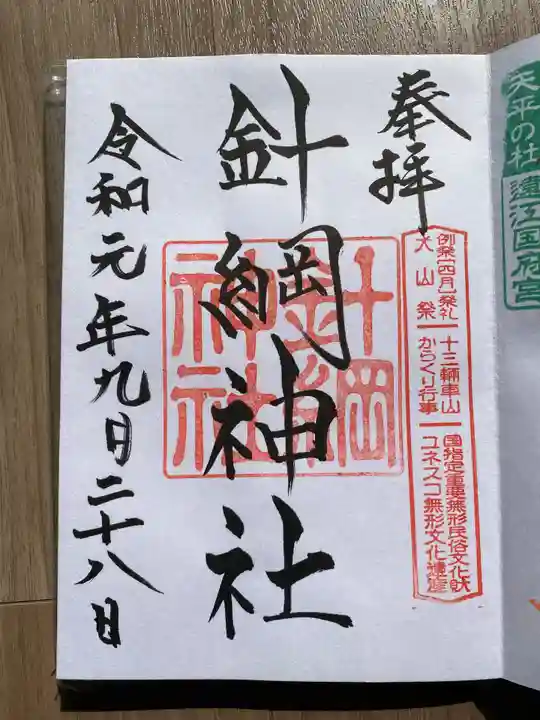 奉拝
針綱神社
令和元年九月二十八日
針綱
神社
例祭【四月】祭礼
犬山祭
十三輛車山
からくり行事
国指定重要無形民俗文化財
ユネスコ無形文化遺産
天平の社
遠江国府宮